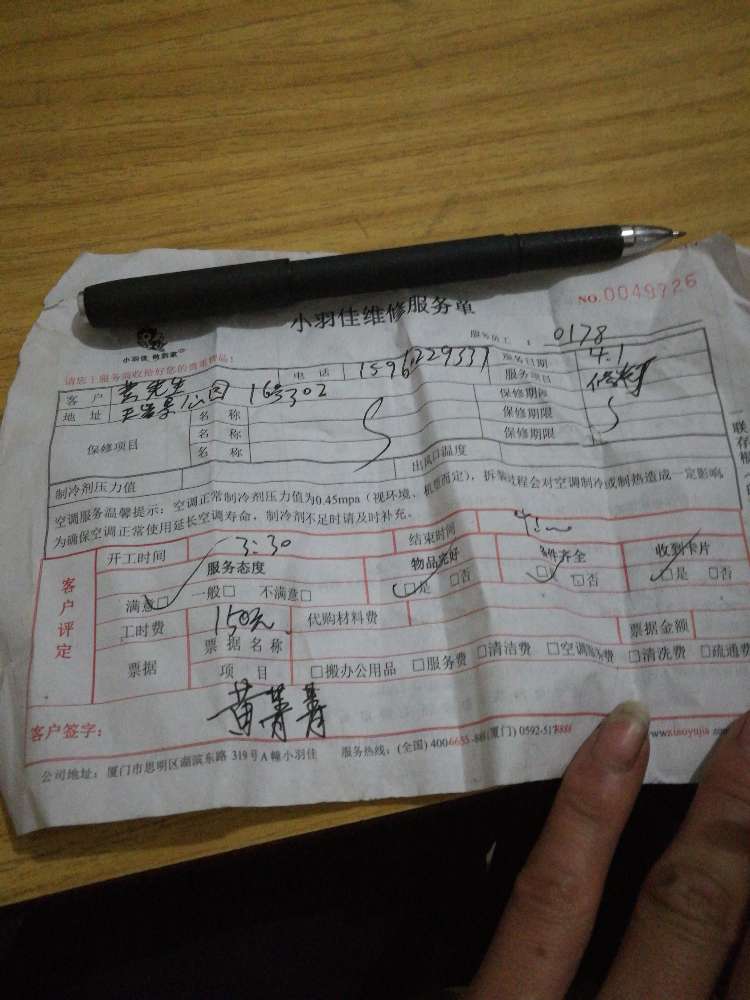 小羽佳维修服务单
NO.0049726
小羽佳 帮到家
服务员工：0178
请您上服务前收拾好您的贵重物品！
客 户 黄先生 电 话 服务日期 4.1
地 址 公园 16号302 服务项目 修
保修项目 名 称 保修期限
名 称 保修期限
名 称 保修期限
制冷剂压力值 出风口温度
空调服务温馨提示：空调正常制冷剂压力值为0.45mpa（视环境、机型而定），拆装过程会对空调制冷或制热造成一定影响
为确保空调正常使用延长空调寿命，制冷剂不足时请及时补充。
一联存根
客户评定
开工时间 3:30 结束时间
服务态度 物品完好 齐全 收到卡片
满意□ 一般□ 不满意□ □是 □否 □ □否 □是 □否
工时费 150元 代购材料费
票据 票据名称 票据金额
项 目 □搬办公用品 □服务费 □清洁费 □空调服务费 □清洗费 □疏通费
客户签字： 黄菁菁
公司地址：厦门市思明区湖滨东路 319号A幢小羽佳 服务热线：(全国) 4006655-888 (厦门) 0592-5178888 www.xiaoyujia.com